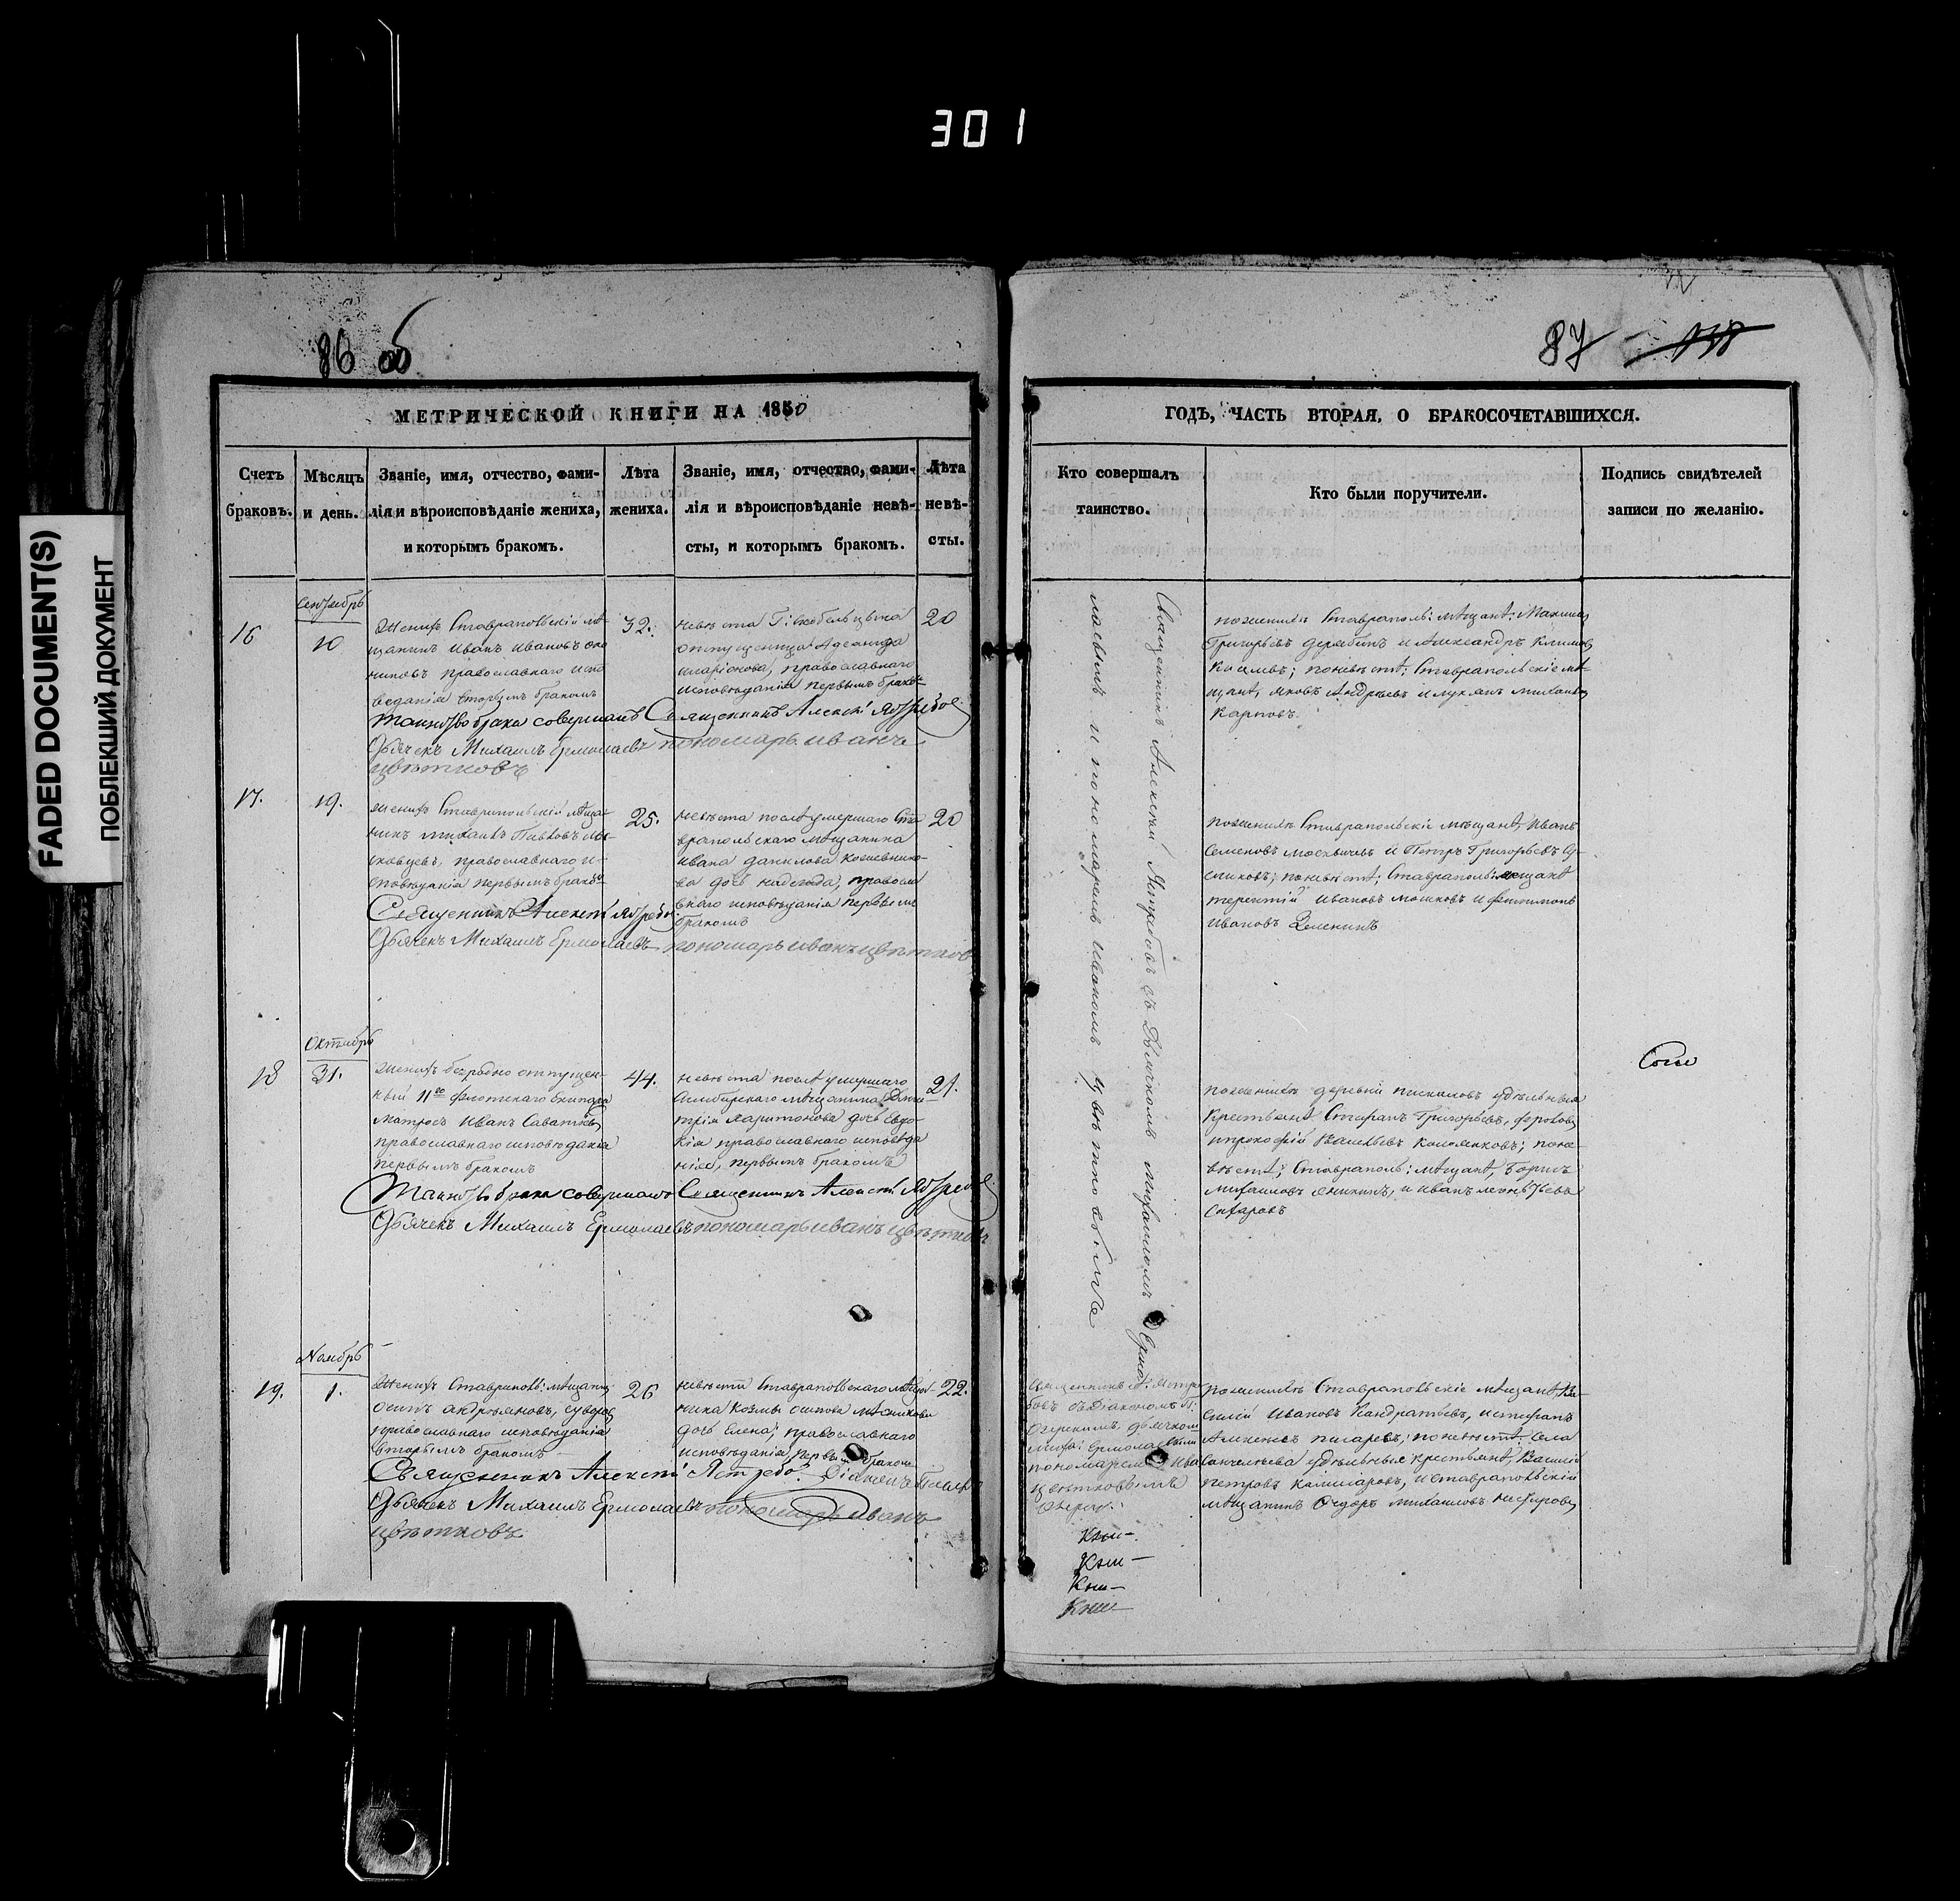 301
FADED DOCUMENT(S)
ПОБЛЕКШИЙ ДОКУМЕНТ
86 об
МЕТРИЧЕСКОЙ КНИГИ НА 1850
Счетъ браковъ.
Мѣсяцъ и день.
Званіе, имя, отчество, фами-
лія и вѣроисповѣданіе жениха,
и которымъ бракомъ.
Лѣта
жениха.
Званіе, имя, отчество, фами-
лія и вѣроисповѣданіе невѣ-
сты, и которымъ бракомъ.
Лѣта
невѣ-
сты.
16
Сентябрь
10
Женихъ Ставропольскій мѣ-
щанинъ Иванъ Ивановъ
православнаго испо
веданія вторымъ бракомъ
32.
невѣста
отпущенница Аделаида
иларіонова, православнаго
исповѣданія первымъ брако
20
Таинство брака совершалъ Священникъ Алексій Ястребов
Дьячекъ Михаилъ Ермолаевъ пономарь иванъ
цвѣтковъ
17.
19.
женихъ Ставропольскій мѣща-
нинъ михаилъ
православнаго и-
сповѣданія первымъ брако
25.
невѣста послѣ умершаго Ста
вропольскаго мѣщанина
ивана данилова кожевнико-
ва дочь надежда, правосла
внаго исповѣданія первымъ
бракомъ
20
Священникъ Алексій Ястребов
Дьячекъ Михаилъ Ермолаевъ пономарь иванъ цвѣтков
18
Октябрь
31.
Женихъ отпущен-
ный 11го флотскаго экипажа
матросъ Иванъ Саватѣев
православнаго исповѣданія
первымъ бракомъ
44.
невѣста послѣ умершаго
Симбирскаго мѣщанина Дми-
трія Харитонова дочь Евдо-
кія православнаго исповѣда
нія, первымъ бракомъ
21.
Таинство брака совершалъ Священникъ Алексій Ястребов
Дьячекъ Михаилъ Ермолаевъ пономарь иванъ цвѣтковъ
19.
Ноябрь
1.
Женихъ Ставрополь: мѣщанин
Осипъ андреяновъ,
православнаго исповѣданія
вторымъ бракомъ
26
невѣста Ставропольскаго мѣщан-
нина Козмы осипова мѣсникова
дочь Елена; православнаго
исповѣданія, первымъ бракомъ
22.
Священникъ Алексій Ястребов. Діаконъ
Дьячекъ Михаилъ Ермолаевъ пономарь Иванъ
цвѣтковъ
87 138
ГОДЪ, ЧАСТЬ ВТОРАЯ, О БРАКОСОЧЕТАВШИХСЯ.
Кто совершалъ
таинство.
Кто были поручители.
Подпись свидѣтелей
записи по желанію.
Священникъ Алексій Ястребовъ съ Дьячкомъ Михаиломъ Ермо
лаевымъ и пономаремъ Иваномъ Цвѣтковымъ
пожениху Ставрополь: мѣщане: Максимъ
Григорьевъ дерябинъ и Александръ Климов
поневѣсте; Ставропольскіе мѣ-
щане, яковъ Андреевъ и лукьянъ михаил
Карповъ.
пожениху Ставропольскіе мѣщане, Иванъ
Семеновъ москвичевъ и Петръ Григорьевъ
поневѣсте; Ставрополь: мещане
терентій ивановъ мошковъ и филимонъ
ивановъ Зеленинъ
пожениху деревни пискаловъ удѣльные
Крестьяне Степанъ Григорьевъ,
ипрокофій Васильевъ поне-
вѣсте; Ставрополь: мѣщане, Борисъ
михаиловъ аникинъ, и иванъ леонтьевъ
Сахаровъ
Священникъ А: Ястре
бовъ съ Діакономъ
дьячком
миха: Ермолаевымъ
пономаремъ Ива
цвѣтковымъ
пожениху Ставропольскіе мѣщане, Ва-
силій Ивановъ Кандратьевъ, истефанъ
Алексѣевъ писаревъ; поневѣсте. Села
удѣльные крестьяне, Василій
петровъ и ставропольскій
мѣщанинъ Федоръ михаиловъ